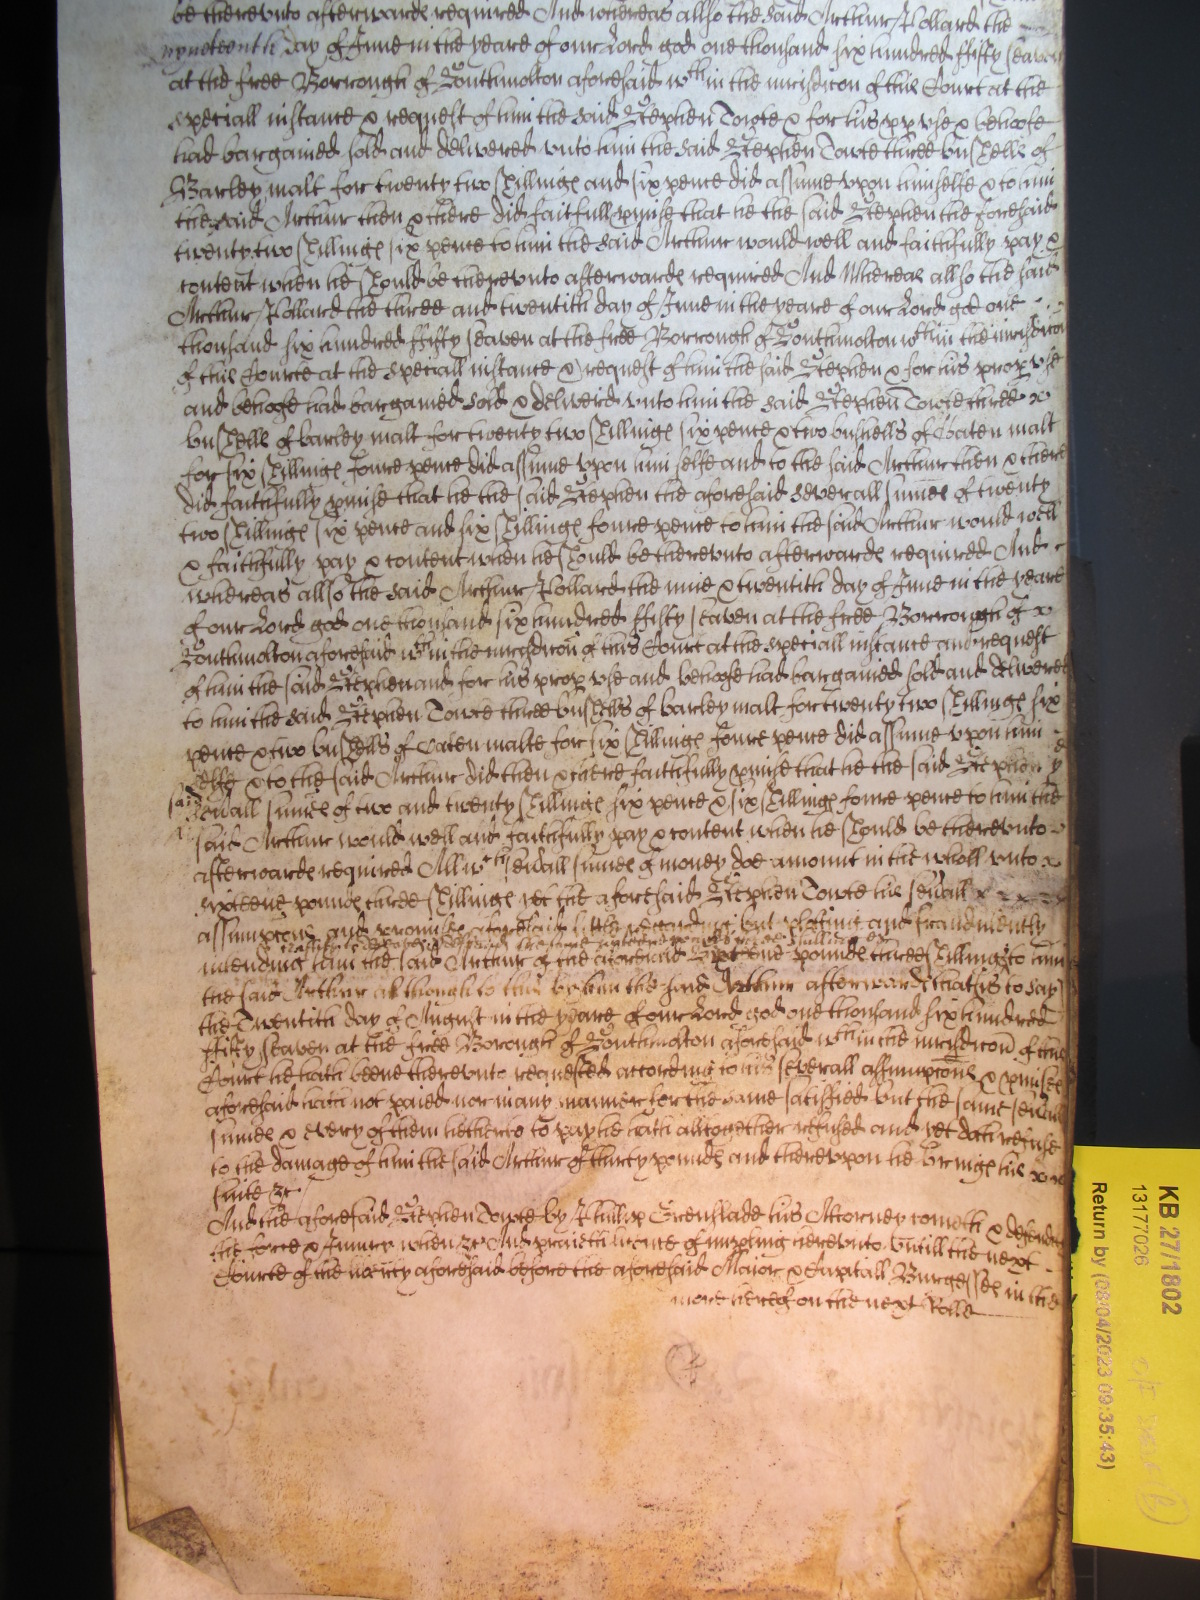 be therevnto afterwarde required And whereas allso the said Arthur Pollard the
nyneteenth day of June in the yeare of our Lord god one thousand six hundred ffifty seaven
at the free Borrough of Southmolton aforesaid wthin the iurisdicon of this Court at the
speciall instance & request of him the said Stephen Towte & for his pp vse & behoofe
had bargained sold and delivered vnto him the said Stephen Towte three bushells of
Barley malt for twenty two shillinge and six pence did assume vpon himselfe & to him
the said Arthur then & there did faithfull pmise that he the said Stephen the foresaid
twenty two shillinge six pence to him the said Arthur would well and faithfully pay &
content when he should be therevnto afterwarde required And Whereas allso the said
Arthur Pollard the three and twentith day of June in the yeare of our Lord god one
thousand six hundred ffifty seaven at the free Borrough of Southmolton wthin the iurisdicon
of this Courte at the speciall instance & request of him the said Stephen & for his prop vse
and behoofe had bargained sold & deliverd vnto him the said Stephen Towte three
bushells of barley malt for twenty two shillinge six pence & two bushells of Oaten malt
for six shillinge foure pence did assume vpon him selfe and to the said Arthur then & there
did faithfully pmise that he the said Stephen the aforesaid severall sumes of twenty
two shillinge six pence and six shillinge foure pence to him the said Arthur would well
& faithfully pay & content when he should be therevnto afterwarde required And
whereas allso the said Arthur Pollard the nine & twentith day of June in the yeare
of our Lord god one thousand six hundred ffifty seaven at the free Borrough of
Southmolton aforesaid wthin the iurisdicon of this Court at the speciall instance and request
of him the said Stephen and for his prop vse and behoofe had bargained sold and delivered
to him the said Stephen Towte three bushells of barley malt for twenty two shillinge six
pence & two bushells of Oaten malte for six shillinge foure pence did assume vpon him
selfe & to the said Arthur did then & there faithfully pmise that he the said Stephen y
said
seuall sumes of two and twenty shillinge six pence & six shillinge foure pence to him the
said Arthur would well and faithfully pay & content when he should be therevnto
afterwarde required All wch seuall sumes of money doe amount in the wholl vnto
sixteene pounde three shillinge yet the aforesaid Stephen Towte his seuall
assumpcons and promises aforesaid little regarding but plotting and fraudulently
intending him the said Arthur of the aforesaid Sixteene pounde three shillinge to him
the said Arthur although to this by him the said Arthur afterward that is to say
the Twentith day of August in the yeare of our Lord god one thousand six hundred
ffifty seaven at the free Borough of Southmolton aforesaid wthin the iurisdicon of this
Court he hath beene therevnto requested according to his severall assumptions & pmises
aforesaid hath not paied nor in any manner for the same satisfied but the same seuall
sumes & every of them hetherto to pay he hath altogether refused and yet doth refuse
to the damage of him the said Arthur of thirty pounds and therevpon he bringe his
suite &c
And the aforesaid Stephen Towte by Phillip Greenslade his Attorney cometh & defendeth
the force & Iniury when &c And prayeth licence of imparling herevnto vntill the next
Courte of the liberty aforesaid before the aforesaid Maior & Capitall Burgesses in the
more hereof on the next Rolle
KB 27/1802
13177026
Return by (08/04/2023 09:35:43)